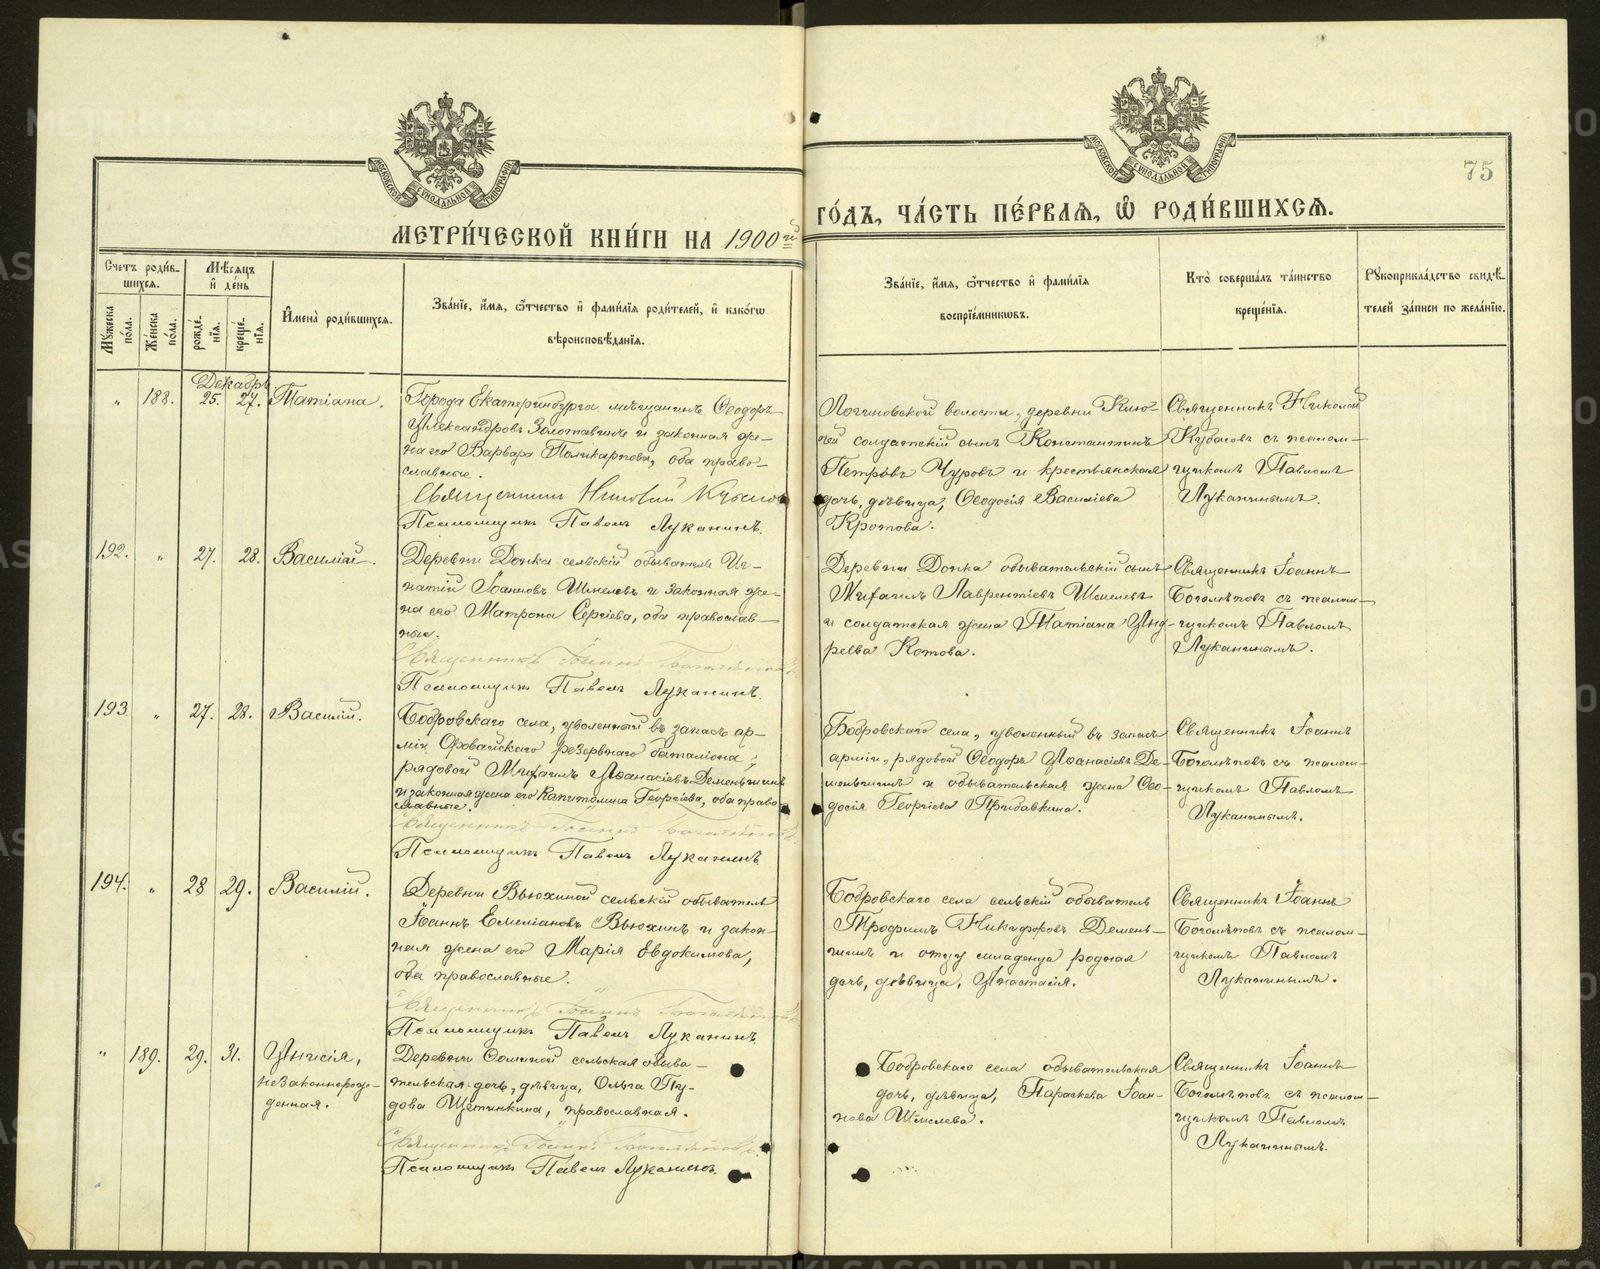 75
МОСКОВСКОЙ СѴНОДАЛЬНОЙ ТИПОГРАФІИ
МОСКОВСКОЙ СѴНОДАЛЬНОЙ ТИПОГРАФІИ
МЕТРИ́ЧЕСКОЙ КНИ́ГИ НА 1900й
ГО́ДЪ, ЧА́СТЬ ПЕ́РВАЯ, Ѡ҆ РОДИ́ВШИХСѦ.
Счетъ роди́в-
шихся.
Мꙋ́жеска по́ла.
Же́нска по́ла.
Мѣ́сяцъ
и҆ де́нь
рожде́нїя.
креще́нїя.
И҆мена̀ роди́вшихся.
Зва́нїе, и҆́мя, ѻ҆́тчество и҆ фами́лїя роди́телей, и҆ како́гѡ
вѣроисповѣ́данїя.
Зва́нїе, и҆́мя, ѻ҆́тчество и҆ фами́лїя
воспрїе́мникѡвъ.
Кто̀ соверша́лъ та́инство
креще́нїя.
Рꙋкоприкла́дство свидѣ́-
телей за́писи по жела́нїю.
Декабрь
" 188. 25. 27. Татіана.
Города Екатеринбурга мѣщанинъ Ѳеодоръ
Александровъ Золотавинъ и законная же-
на его Варвара Поликарпова, оба право-
славные.
Священникъ Николай
Псаломщикъ Павелъ Луканинъ.
Логиновской волости, деревни Клю-
чей солдатскій сынъ Константинъ
Петровъ Чуровъ и крестьянская
дочь, дѣвица, Ѳеодосія Василіева
Кротова.
Священникъ Николай
Кубасовъ съ псалом-
щикомъ Павломъ
Луканинымъ.
192. " 27. 28. Василій.
Деревни Донка сельскій обыватель Иг-
натій Іоанновъ Шмелевъ и законная же-
на его Матрона Сергіева, оба православ-
ные.
Священникъ Іоаннъ Боголѣповъ
Псаломщикъ Павелъ Луканинъ.
Деревни Донка обывательскій сынъ
Михаилъ Лаврентіевъ Шмелевъ
и солдатская жена Татіана Анд-
реева Котова.
Священникъ Іоаннъ
Боголѣповъ съ псалом-
щикомъ Павломъ
Луканинымъ.
193. " 27. 28. Василій.
Бобровскаго села, уволенный въ запасъ ар-
міи Оровайскаго резервнаго баталіона,
рядовой Михаилъ Аѳанасіевъ Деменьшинъ
и законная жена его Капитолина Георгіева, оба право-
славные.
Священникъ Іоаннъ Боголѣповъ
Псаломщикъ Павелъ Луканинъ.
Бобровскаго села, уволенный въ запасъ
арміи, рядовой Ѳеодоръ Аѳанасіевъ Де-
меньшинъ и обывательская жена Ѳео-
досія Георгіева Прибавкина.
Священникъ Іоаннъ
Боголѣповъ съ псалом-
щикомъ Павломъ
Луканинымъ.
194. " 28 29. Василій.
Деревни Вьюхиной сельскій обыватель
Іоаннъ Емеліановъ Вьюхинъ и закон-
ная жена его Марія Евдокимова,
оба православные.
Священникъ Іоаннъ Боголѣповъ
Псаломщикъ Павелъ Луканинъ.
Бобровскаго села сельскій обыватель
Трофимъ Никифоровъ Демень-
шинъ и отцу младенца родная
дочь, дѣвица, Анастасія.
Священникъ Іоаннъ
Боголѣповъ съ псалом-
щикомъ Павломъ
Луканинымъ.
" 189. 29. 31. Анисія,
незаконнорож-
денная.
Деревни Фоминой сельская обыва-
тельская дочь, дѣвица, Ольга Пу-
дова Щетинкина, православная.
Священникъ Іоаннъ Боголѣповъ
Псаломщикъ Павелъ Луканинъ.
Бобровскаго села обывательская
дочь, дѣвица, Параскева Іоан-
нова Шмелева.
Священникъ Іоаннъ
Боголѣповъ съ псалом-
щикомъ Павломъ
Луканинымъ.